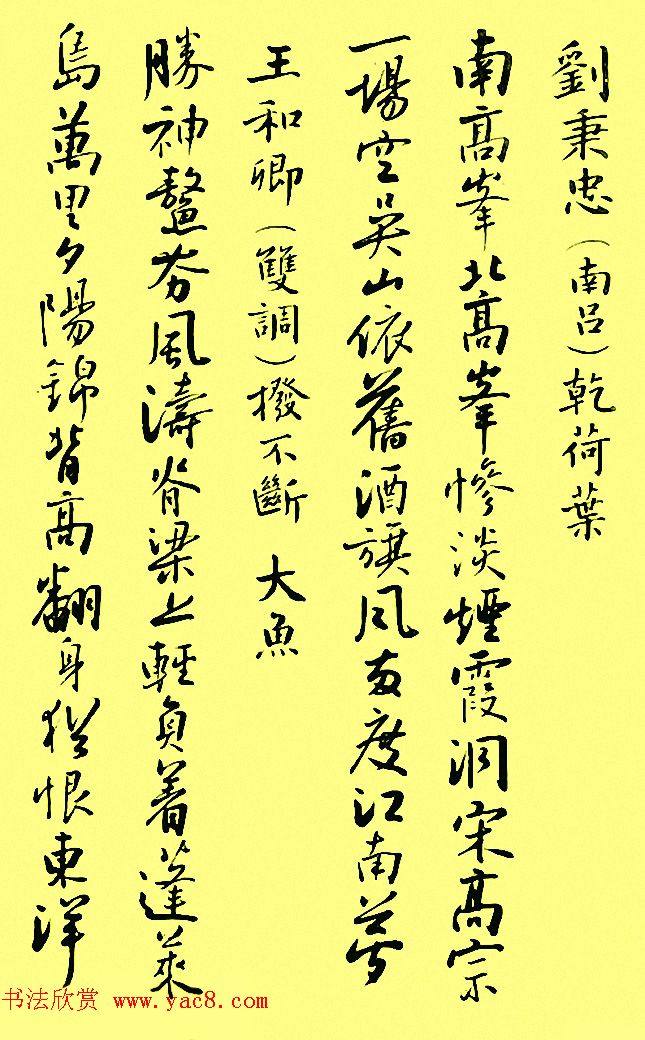 劉秉忠(南呂)乾荷葉
南高峯北高峯慘淡煙霞洞宋高宗
一場空吳山依舊酒旗風兩度江南夢
王和卿(雙調)撥不斷 大魚
勝神鼇夯風濤脊梁上輕負着蓬萊
島萬里夕陽錦背高翻身猶恨東洋
书法欣赏 www.yac8.com